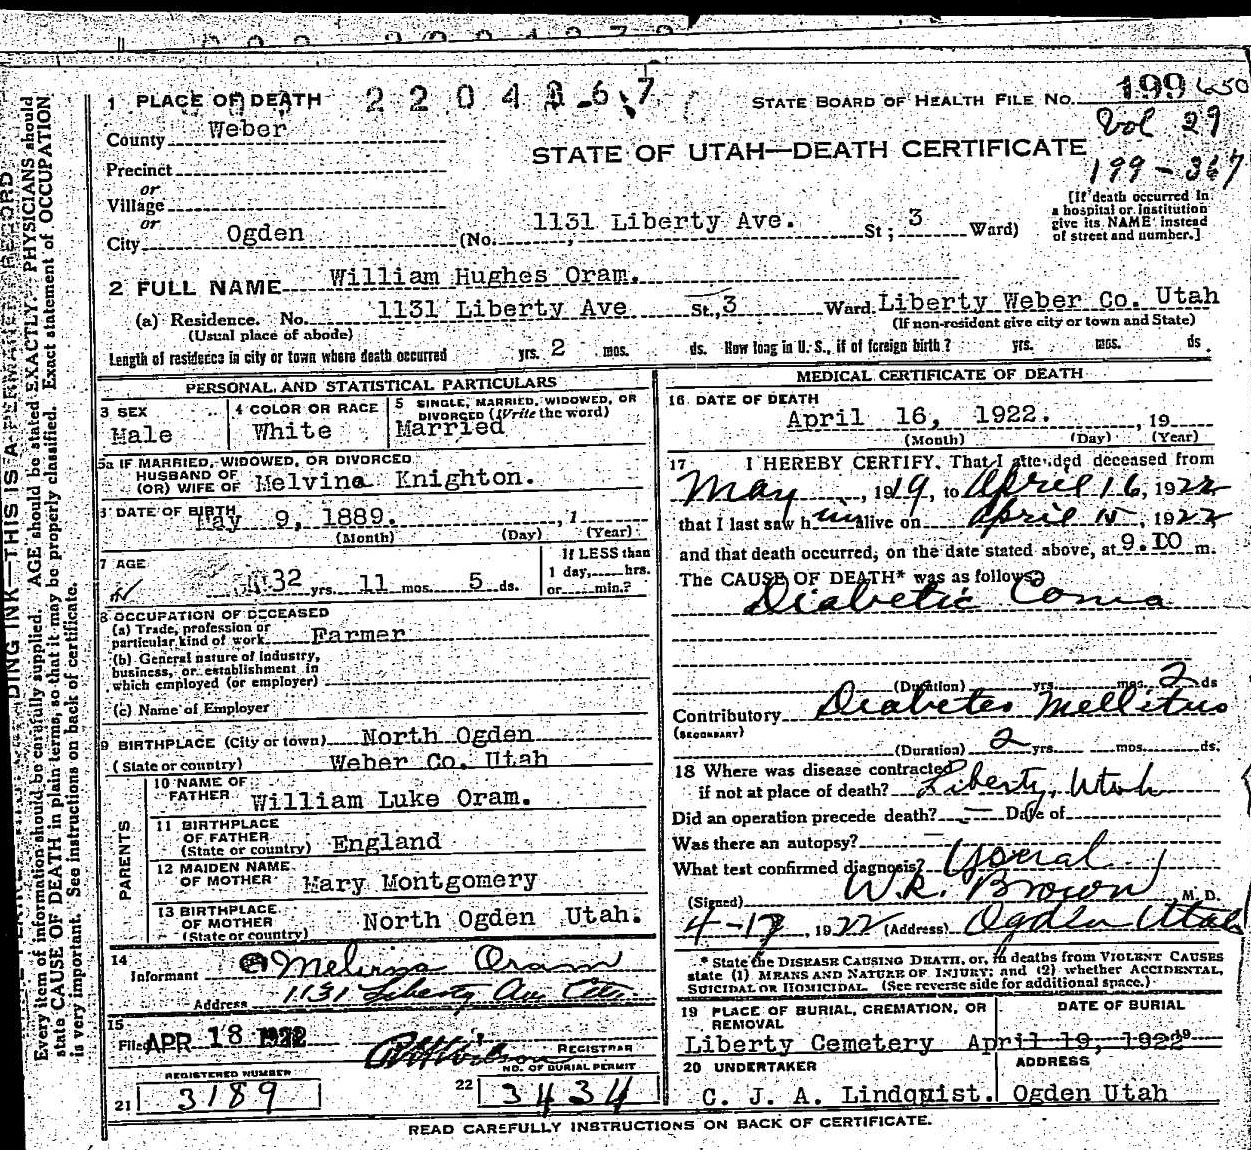 1 PLACE OF DEATH 2204367 STATE BOARD OF HEALTH FILE NO. 199 650
County Weber Vol 29
STATE OF UTAH—DEATH CERTIFICATE
Precinct 199-367
or
Village
or
City Ogden (No. 1131 Liberty Ave. St; 3 Ward)
[If death occurred in
a hospital or institution
give its NAME instead
of street and number.]
2 FULL NAME William Hughes Oram.
(a) Residence. No. 1131 Liberty Ave St., 3 Ward. Liberty Weber Co. Utah
(Usual place of abode) (If non-resident give city or town and State)
Length of residence in city or town where death occurred yrs. 2 mos. ds. How long in U. S., if of foreign birth? yrs. mos. ds.
PERSONAL AND STATISTICAL PARTICULARS
3 SEX 4 COLOR OR RACE 5 SINGLE, MARRIED, WIDOWED, OR
DIVORCED (Write the word)
Male White Married
5a IF MARRIED, WIDOWED, OR DIVORCED
HUSBAND OF
(OR) WIFE OF Melvina Knighton.
6 DATE OF BIRTH May 9, 1889. , 1
(Month) (Day) (Year)
7 AGE 32 yrs. 11 mos. 5 ds.
If LESS than
1 day, hrs.
or min.?
8 OCCUPATION OF DECEASED
(a) Trade, profession or
particular kind of work Farmer
(b) General nature of industry,
business, or establishment in
which employed (or employer)
(c) Name of Employer
9 BIRTHPLACE (City or town) North Ogden
(State or country) Weber Co. Utah
PARENTS
10 NAME OF
FATHER William Luke Oram.
11 BIRTHPLACE
OF FATHER
(State or country) England
12 MAIDEN NAME
OF MOTHER Mary Montgomery
13 BIRTHPLACE
OF MOTHER
(State or country) North Ogden Utah.
14
Informant Melissa Oram
Address 1131 Liberty Av City
15
Filed APR 18 1922 Wilson REGISTRAR
REGISTERED NUMBER NO. OF BURIAL PERMIT
21 3189 22 3434
MEDICAL CERTIFICATE OF DEATH
16 DATE OF DEATH
April 16, 1922. , 19
(Month) (Day) (Year)
17 I HEREBY CERTIFY, That I attended deceased from
May , 1919, to April 16, 1922
that I last saw him alive on April 15, 1922
and that death occurred, on the date stated above, at 9.10 m.
The CAUSE OF DEATH* was as follows:
Diabetic Coma
(Duration) yrs. mos. 2 ds
Contributory Diabetes Mellitus
(SECONDARY)
(Duration) 2 yrs. mos. ds.
18 Where was disease contracted
if not at place of death? Liberty, Utah
Did an operation precede death? — Date of
Was there an autopsy? —
What test confirmed diagnosis?
(Signed) W.R. Brown M. D.
4-17, 1922 (Address) Ogden Utah
* State the DISEASE CAUSING DEATH, or, in deaths from VIOLENT CAUSES
state (1) MEANS AND NATURE OF INJURY; and (2) whether ACCIDENTAL,
SUICIDAL OR HOMICIDAL. (See reverse side for additional space.)
19 PLACE OF BURIAL, CREMATION, OR
REMOVAL DATE OF BURIAL
Liberty Cemetery April 19, 1922 19
20 UNDERTAKER ADDRESS
C. J. A. Lindquist. Ogden Utah
READ CAREFULLY INSTRUCTIONS ON BACK OF CERTIFICATE.
DING INK—THIS IS A PERMANENT RECORD
Every item of information should be carefully supplied. AGE should be stated EXACTLY. PHYSICIANS should
state CAUSE OF DEATH in plain terms, so that it may be properly classified. Exact statement of OCCUPATION
is very important. See instructions on back of certificate.